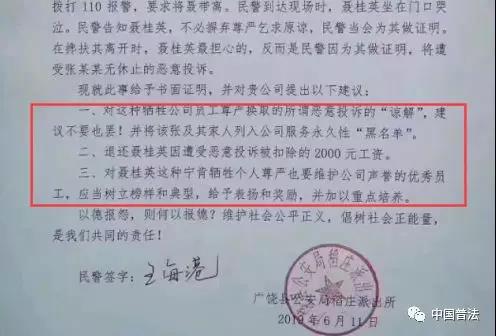 拨打 110 报警，要求将聂带离。民警到达现场时，聂桂英坐在门口哭
泣。民警告知聂桂英，不必摒弃尊严乞求原谅，民警当会为其做证明。
在搀扶其离开时，聂桂英最担心的，反而是民警因为其做证明，将遭
受张某某无休止的恶意投诉。
现就此事给予书面证明，并对贵公司提出以下建议：
一、对这种牺牲公司员工尊严换取的所谓恶意投诉的“谅解”，建
议不要也罢！并将该张及其家人列入公司服务永久性“黑名单”。
二、退还聂桂英因遭受恶意投诉被扣除的 2000 元工资。
三、对聂桂英这种宁肯牺牲个人尊严也要维护公司声誉的优秀员
工，应当树立榜样和典型，给予表扬和奖励，并加以重点培养。
以德报怨，则何以报德？维护社会公平正义，倡树社会正能量，
是我们共同的责任！
民警签字：王海港
广饶县公安局稻庄派出所
2019 年 6 月 11 日
中国普法